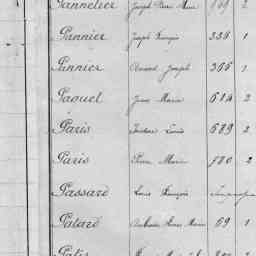 Pannetier Joseph Pierre Marie 2
Pannier Joseph François 336 1
Pannier Joseph 366 1
Paquet Jean Marie 684 2
Paris Louis 689 2
Paris Pierre Marie 780 2
Passard Louis François
Patard Marie 69 1
Patis